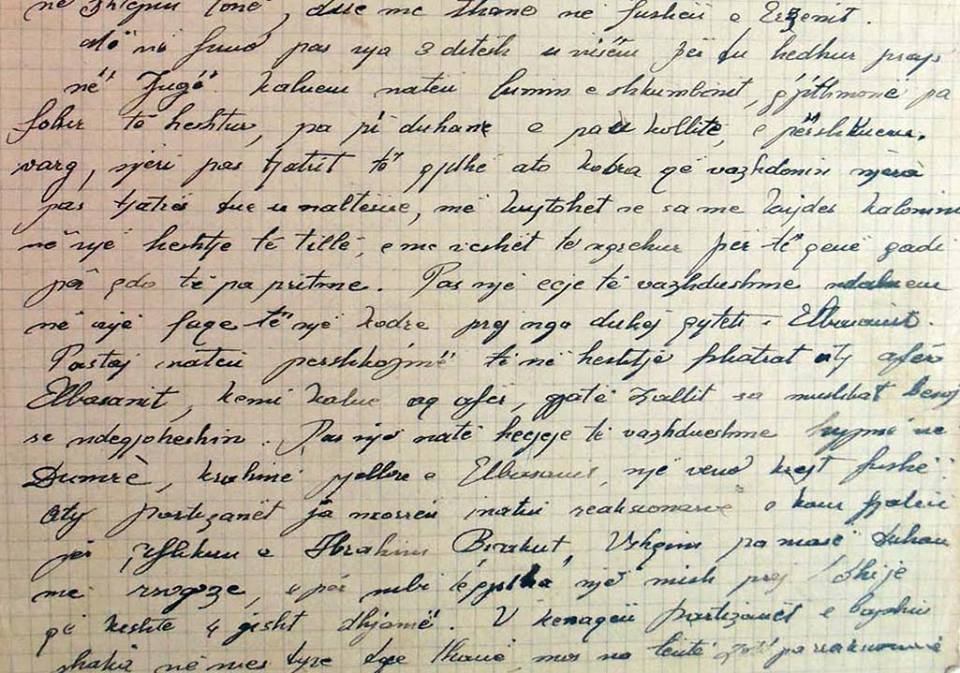 në Shqipni tonë, due me thanë në fushën e Erzenit.
Aty në fund pas nja 3 ditësh u nisëm për tu hedhur prap
në Jugë. Kaluem natën lumin e Shkumbinit, gjithmonë pa
folur të heshtur, pa pi duhanë e pa u kollitë, e përshkuem.
varg, njeri pas tjetrit të gjithë ato kodra që vazhdonin njera
pas tjetrës tue u naltësue, me kujtohet se sa me kujdes kalonim
në një heshtje të tillë, e me veshët të ngrehur për të qenë gadi
për çdo të pa pritme. Pas një ecje të vazhdushme ndaluem
në një faqe të një kodre prej nga dukej qyteti i Elbasanit.
Pastaj natën përshkojmë të në heshtje fshatrat aty afër
Elbasanit, kemi kalue aq afër, gjatë Zallit sa mushkat
se ndegjoheshin. Pas një natë hecjeje të vazhdueshme hypmë ne
Dumrè, krahinë pjellore e Elbasanit, një vend krejt fushë
Aty partizanët ja morrën inatin reaksionarve e kanë
për çiflikun e Ibrahim Biçakut, Ushqim pa masë duhan
me rrogoze, e për mbi të gjitha një mish prej dhije
që kishte 4 gisht dhjamë. U kënaqën partizanët e
shaka në mes tyre tue thanë, mos na lentë Zoti pa reaksionarë